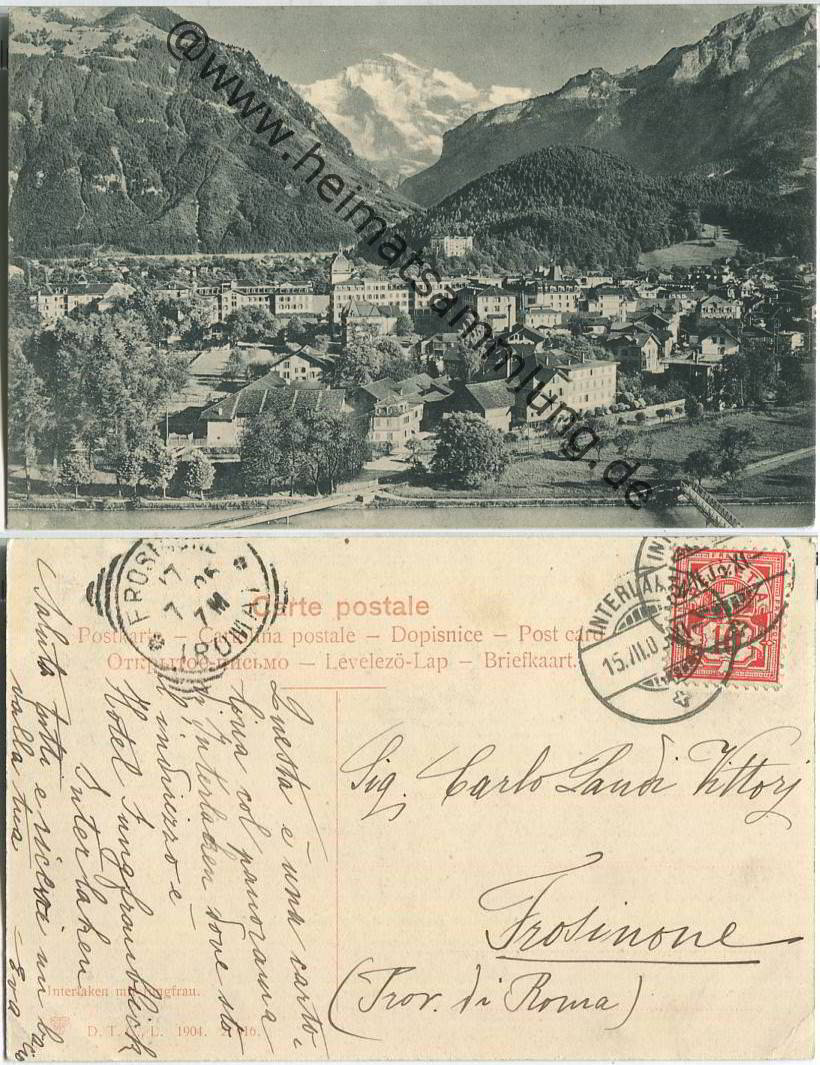 @www.heimatsammlung.de
Carte postale
Postkarte — Cartolina postale — Dopisnice — Post card
Открытое письмо — Levelező-Lap — Briefkaart.
FROSINONE
17 7 06
7 M
(ROMA)
INTERLAKEN
15.VII.0
10
Sig. Carlo Landi Vittorj
Frosinone
(Prov. di Roma)
Questa è una carto-
lina col panorama
di Interlaken dove sto
L'indirizzo è
Hotel Jungfraublick
Interlaken
Saluta tutti e ricevi un bacio
dalla tua — Eva
Interlaken mit Jungfrau.
D. T. C., L. 1904. 2116.